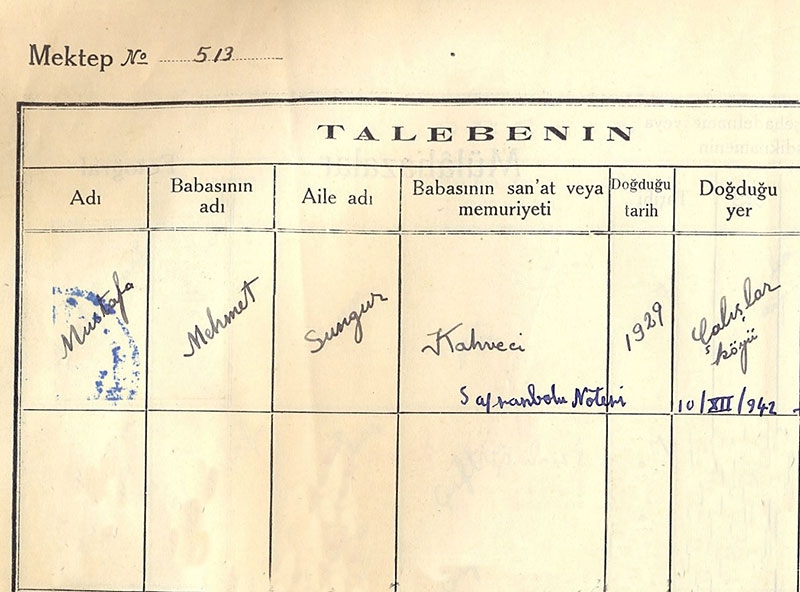 Mektep No 513
TALEBENIN
Adı
Babasının
adı
Aile adı
Babasının san'at veya
memuriyeti
Doğduğu
tarih
Doğduğu
yer
Mustafa
Mehmet
Sungur
Kahveci
1929
Çalışlar
köyü
Safranbolu Noteri
10/XII/942